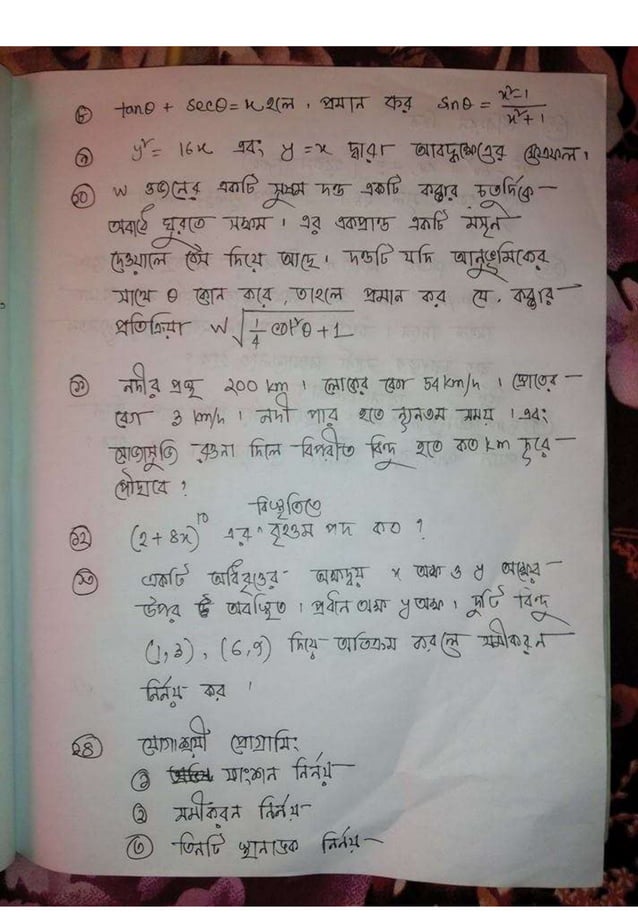 ৮ tanθ + secθ = x হলে, প্রমান কর sinθ = x²-1 / x²+1
৯ y² = 16x এবং y = x দ্বারা আবদ্ধক্ষেত্রের ক্ষেত্রফল।
১০ W ওজনের একটি সুষম দন্ড একটি কব্জার চতুর্দিকে
অবাধে ঘুরতে সক্ষম। এর একপ্রান্ত একটি মসৃন
দেওয়ালে ঠেস দিয়ে আছে। দন্ডটি যদি আনুভূমিকের
সাথে θ কোন করে, তাহলে প্রমান কর যে, কব্জার
প্রতিক্রিয়া W√(1/4 cot²θ + 1)
১১ নদীর প্রস্থ ২০০ km। লোকের বেগ ৫৪ km/h। স্রোতের
বেগ ৩ km/h। নদী পার হতে ন্যূনতম সময়। এবং
সোজাসুজি রওনা দিলে বিপরীত বিন্দু হতে কত km দূরে
পৌছাবে?
বিস্তৃতিতে
১২ (2 + 8x)¹⁰ এর ^ বৃহত্তম পদ কত?
১৩ একটি অধিবৃত্তের অক্ষদ্বয় x অক্ষ ও y অক্ষের
উপর অবস্থিত। প্রধান অক্ষ y অক্ষ। দুটি বিন্দু
(1,3), (6,9) দিয়ে অতিক্রম করলে সমীকরন
নির্নয় কর।
১৪ যোগাশ্রয়ী প্রোগ্রামিং
১ ফাংশন নির্নয়
২ সমীকরন নির্নয়
৩ তিনটি স্থানাঙ্ক নির্নয়